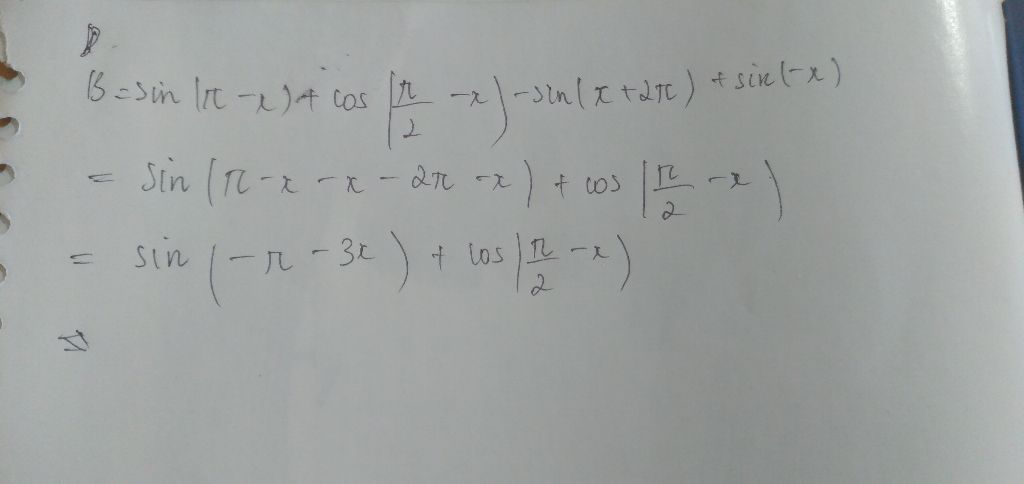 B = sin(π - x) + cos(π/2 - x) - sin(x + 2π) + sin(-x)
= sin(π - x - x - 2π - x) + cos(π/2 - x)
= sin(-π - 3x) + cos(π/2 - x)